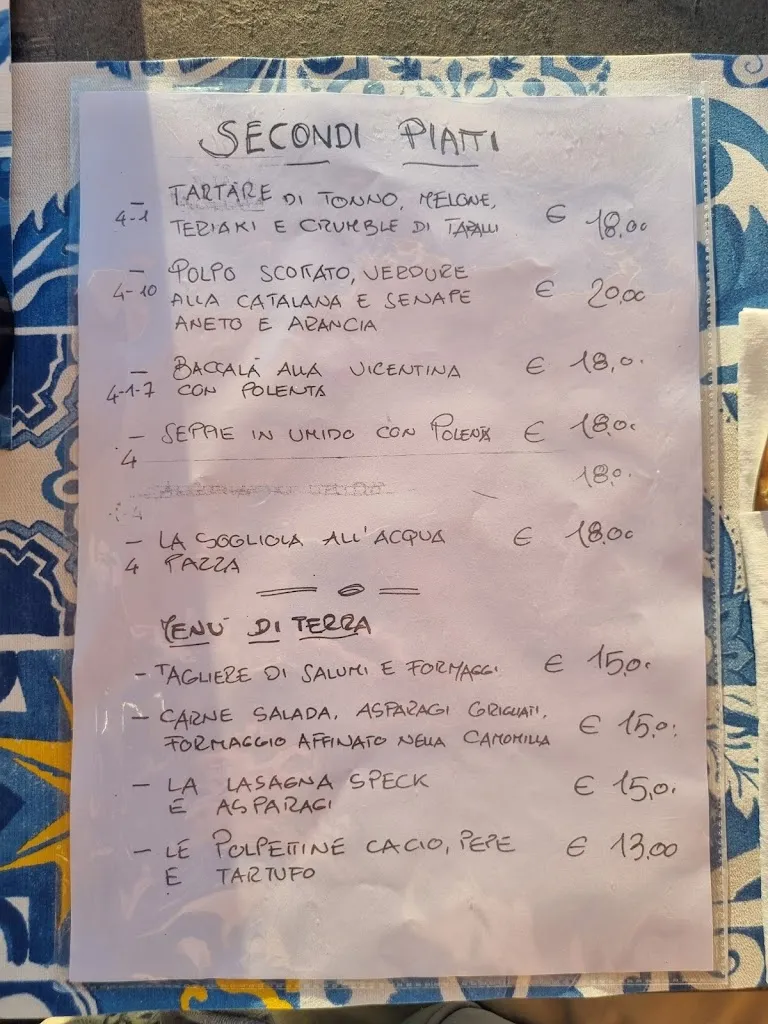 SECONDI PIATTI
- TARTARE DI TONNO, MELONE, € 18,00
4-1 TERIAKI E CRUMBLE DI TARALLI
- POLPO SCOTTATO, VERDURE
4-10 ALLA CATALANA E SENAPE € 20,00
ANETO E ARANCIA
- BACCALÀ ALLA VICENTINA € 18,0.
4-1-7 CON POLENTA
- SEPPIE IN UMIDO CON POLENTA € 18,0.
4
18,0.
- LA SOGLIOLA ALL'ACQUA € 18,00
4 PAZZA
MENÙ DI TERRA
- TAGLIERE DI SALUMI E FORMAGGI € 15,0.
- CARNE SALADA, ASPARAGI GRIGLIATI, € 15,0.
FORMAGGIO AFFINATO NELLA CAMOMILLA
- LA LASAGNA SPECK € 15,0.
E ASPARAGI
- LE POLPETTINE CACIO, PEPE € 13,00
E TARTUFO